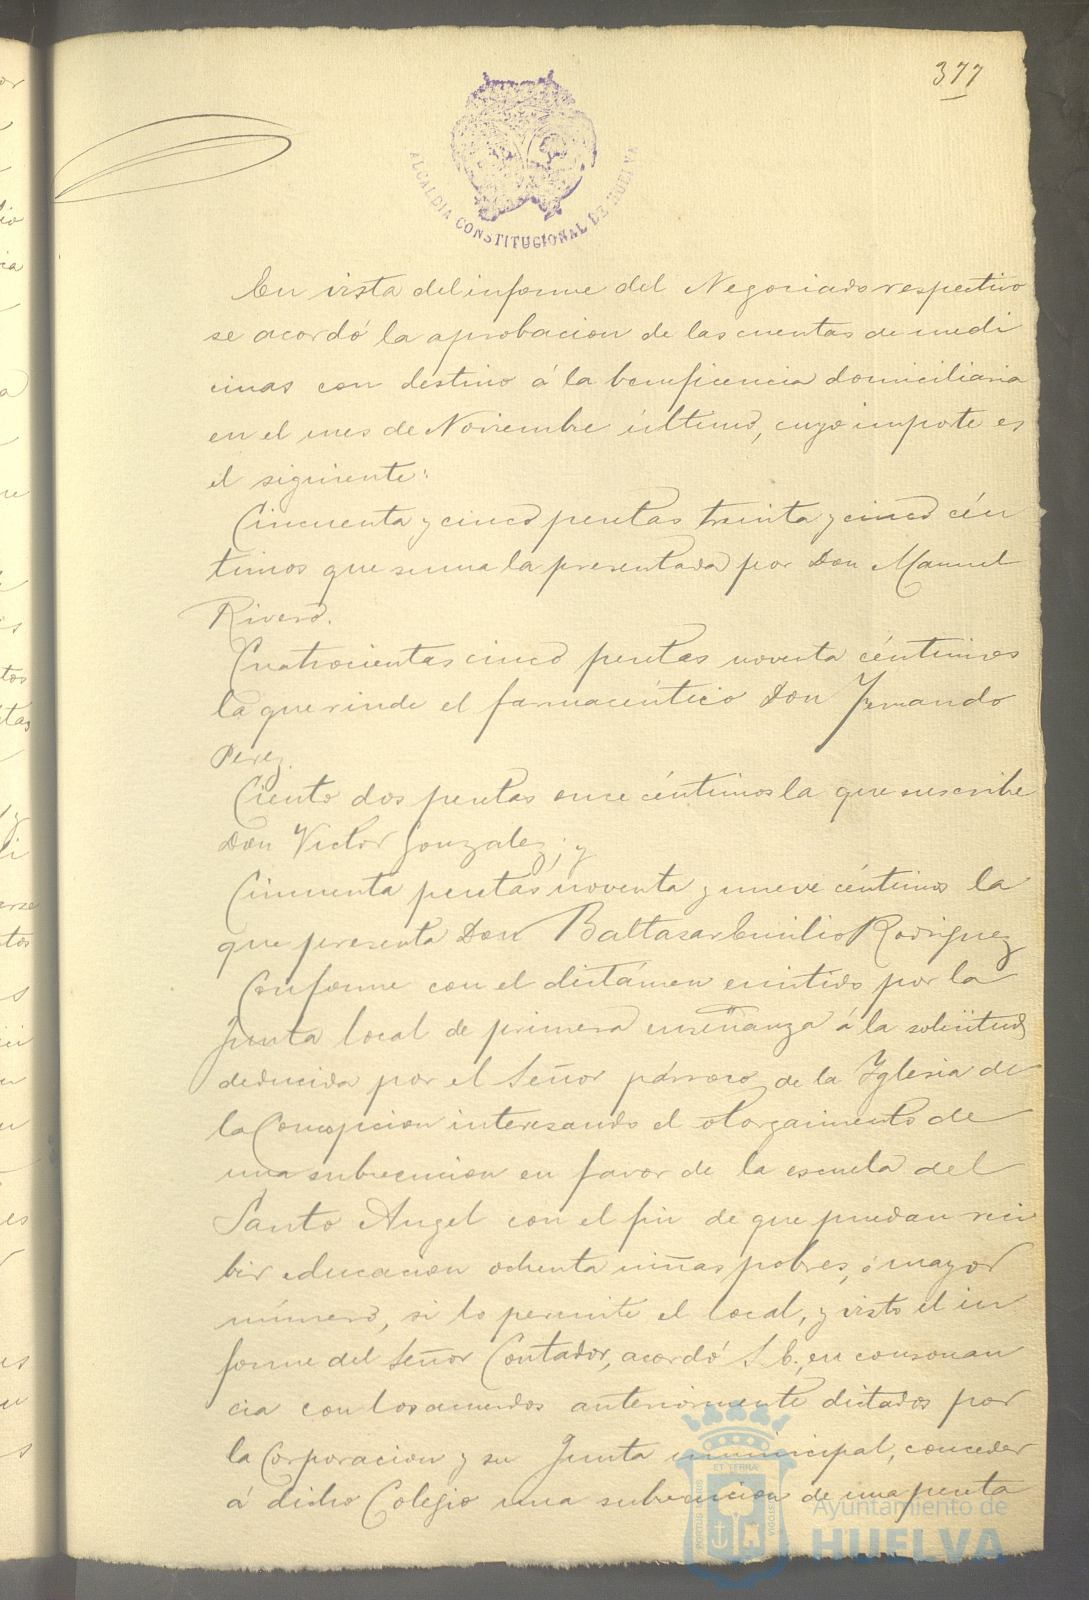 377
ALCALDIA CONSTITUCIONAL DE HUELVA
En vista del informe del Negociado respectivo
se acordó la aprobacion de las cuentas de medi
cinas con destino á la beneficencia domiciliaria
en el mes de Noviembre último, cuyo importe es
el siguiente:
Cincuenta y cinco pesetas treinta y cinco cén
timos que suma la presentada por Don Manuel
Rivero.
Cuatrocientas cinco pesetas noventa céntimos
la que rinde el farmaceútico Don Fernando
Perez.
Ciento dos pesetas once céntimos la que suscribe
Don Victor Gonzalez; y
Cincuenta pesetas noventa y nueve céntimos la
que presenta Don Baltasar Emilio Rodriguez
Conforme con el dictámen emitido por la
Junta local de primera enseñanza á la solicitud
deducida por el Señor párroco de la Iglesia de
la Concepcion interesando el otorgamiento de
una subvencion en favor de la escuela del
Santo Angel con el fin de que puedan reci
bir educacion ochenta niñas pobres, ó mayor
número, si lo permite el local, y visto el in
forme del Señor Contador, acordó S. E., en consonan
cia con los acuerdos anteriormente dictados por
la Corporacion y su Junta municipal, conceder
á dicho Colegio una subvencion de una peseta
Ayuntamiento de
HUELVA